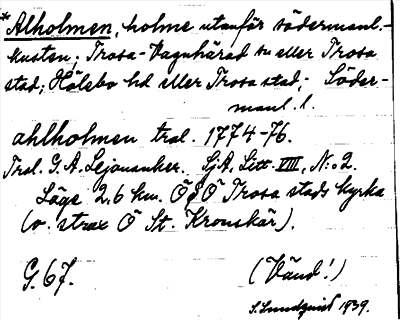 *Alholmen, holme utanför södermanl.-
kusten; Trosa-Vagnhärad sn eller Trosa
stad; Hölebo hd eller Trosa stad; Söder-
manl. l.
ahlholmen tral. 1774-76.
Tral. G. A. Lejonanker. SjA, Litt. VIII, No 2.
Läge 2,6 km. ÖSÖ Trosa stads kyrka
(o. strax Ö St. Kronskär).
G. 67. (Vänd!)
S. Lundquist 1939.